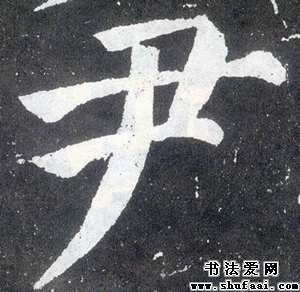 尹
书法爱网
www.shufaai.com